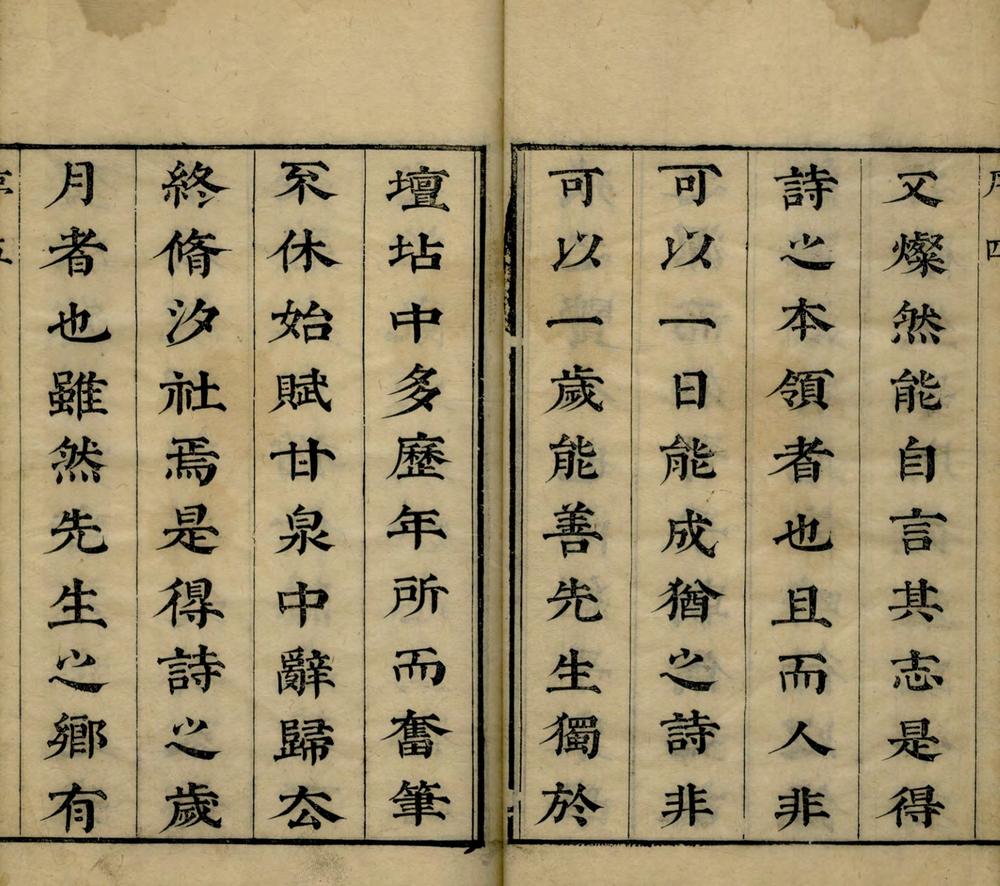 序 四
又燦然能自言其志是得
詩之本領者也且而人非
可以一日能成猶之詩非
可以一歲能善先生獨於
壇坫中多歷年所而奮筆
不休始賦甘泉中辭歸夳
終脩汐社焉是得詩之歲
月者也雖然先生之鄉有
序 五